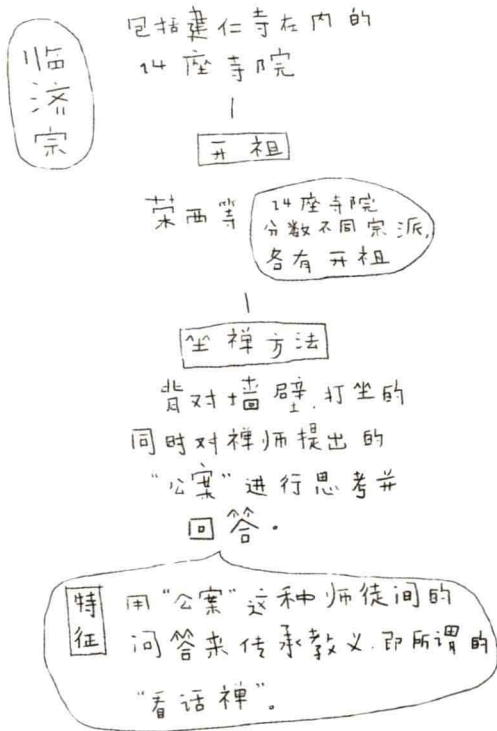 临济宗
包括建仁寺在内的
14座寺院
开祖
荣西等
14座寺院
分数不同宗派,
各有开祖
坐禅方法
背对墙壁,打坐的
同时对禅师提出的
“公案”进行思考并
回答。
特征
用“公案”这种师徒间的
问答来传承教义,即所谓的
“看话禅”。